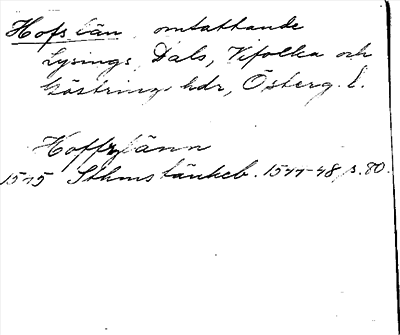 Hofs län, omfattande
Lysings, Dals, Vifolka och
Göstrings hdr, Österg. l.
Hoffzlänn
1545 Sthms tänkeb. 1544-48, s. 80.